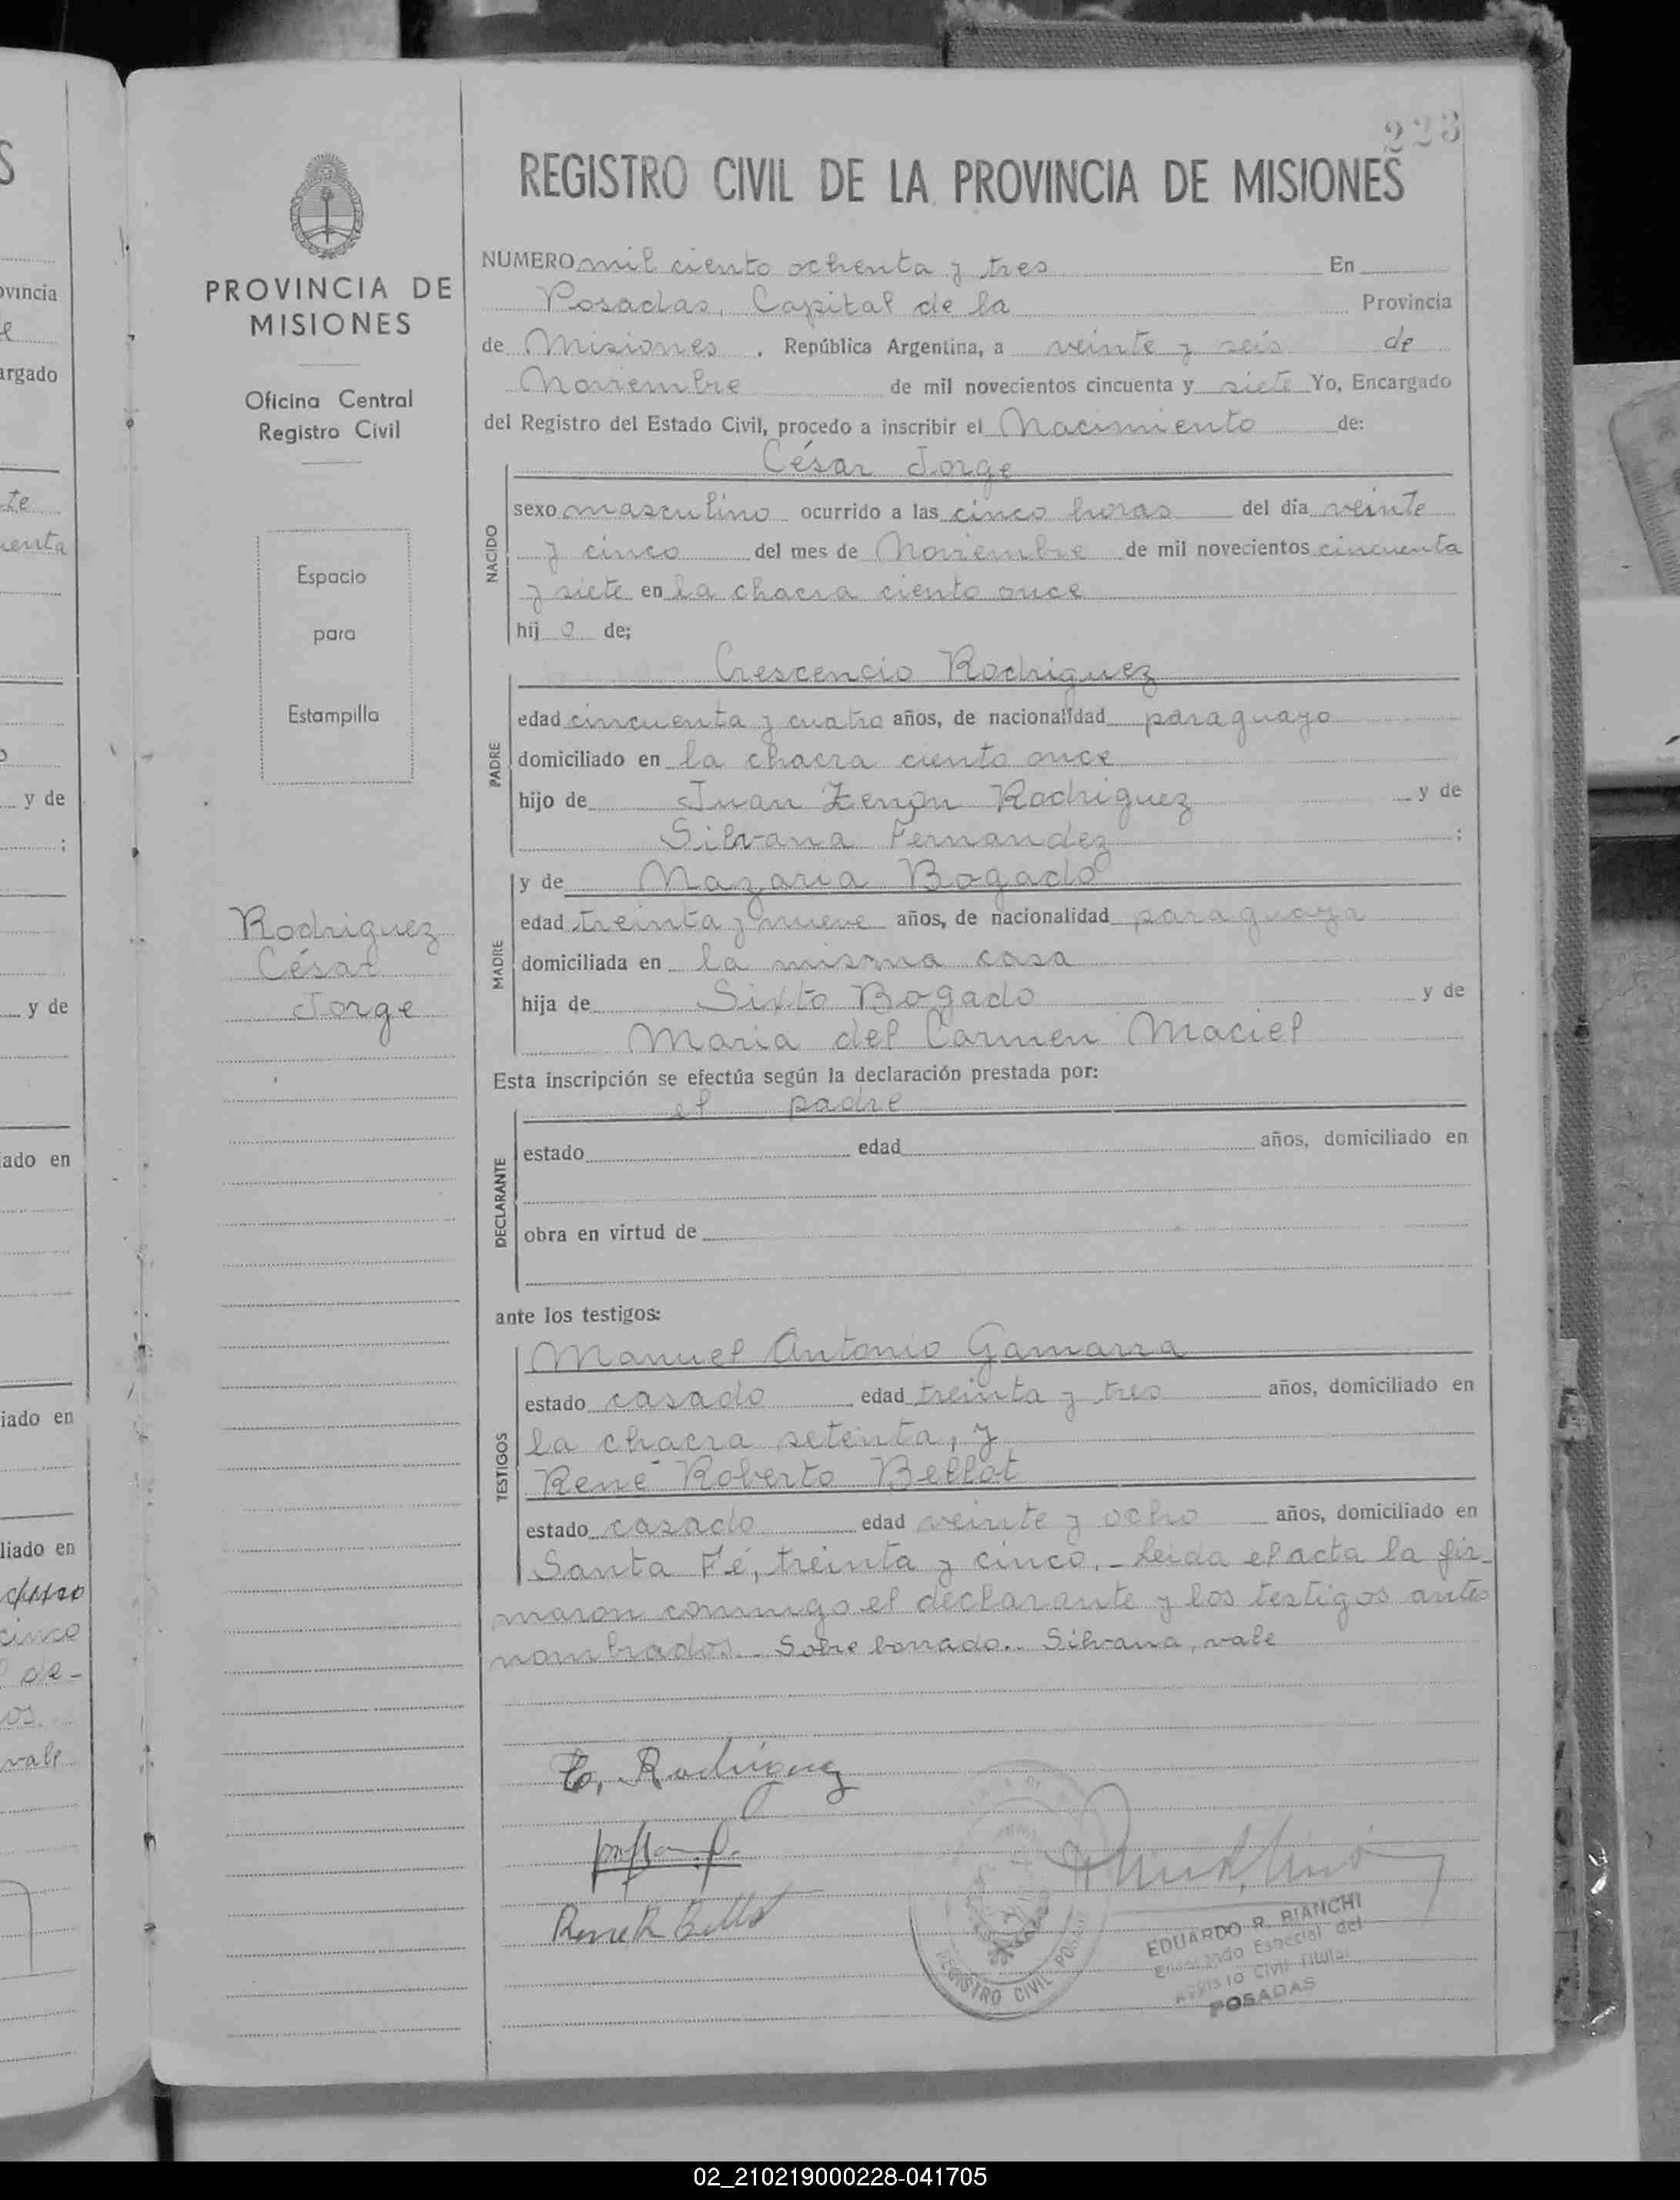 223
REGISTRO CIVIL DE LA PROVINCIA DE MISIONES
PROVINCIA DE
MISIONES
Oficina Central
Registro Civil
Espacio
para
Estampilla
Rodriguez
César
Jorge
NUMERO mil ciento ochenta y tres En
Posadas, Capital de la Provincia
de Misiones, República Argentina, a veinte y seis de
Noviembre de mil novecientos cincuenta y siete Yo, Encargado
del Registro del Estado Civil, procedo a inscribir el Nacimiento de:
César Jorge
NACIDO
sexo masculino ocurrido a las cinco horas del dia veinte
y cinco del mes de Noviembre de mil novecientos cincuenta
y siete en la chacra ciento once
hij o de;
Crescencio Rodriguez
PADRE
edad cincuenta y cuatro años, de nacionalidad paraguayo
domiciliado en la chacra ciento once
hijo de Juan Zenón Rodriguez y de
Silvana Fernandez ;
y de Nazaria Bogado
MADRE
edad treinta y nueve años, de nacionalidad paraguaya
domiciliada en la misma casa
hija de Sixto Bogado y de
Maria del Carmen Maciel
Esta inscripción se efectúa según la declaración prestada por:
el padre
DECLARANTE
estado edad años, domiciliado en
obra en virtud de
ante los testigos:
Manuel Antonio Gamarra
TESTIGOS
estado casado edad treinta y tres años, domiciliado en
la chacra setenta, y
René Roberto Bellot
estado casado edad veinte y ocho años, domiciliado en
Santa Fé, treinta y cinco.- Leida el acta la fir-
maron conmigo el declarante y los testigos antes
nombrados.- Sobre borrado.- Silvana, vale
C. Rodriguez
Rene R Bellot
REGISTRO CIVIL POSADAS
EDUARDO R. BIANCHI
Encargado Especial del
Registro Civil Titular
POSADAS
ovincia
argado
te
ienta
y de
;
y de
iado en
iado en
liado en
cinco
de-
os.
vale
02_210219000228-041705